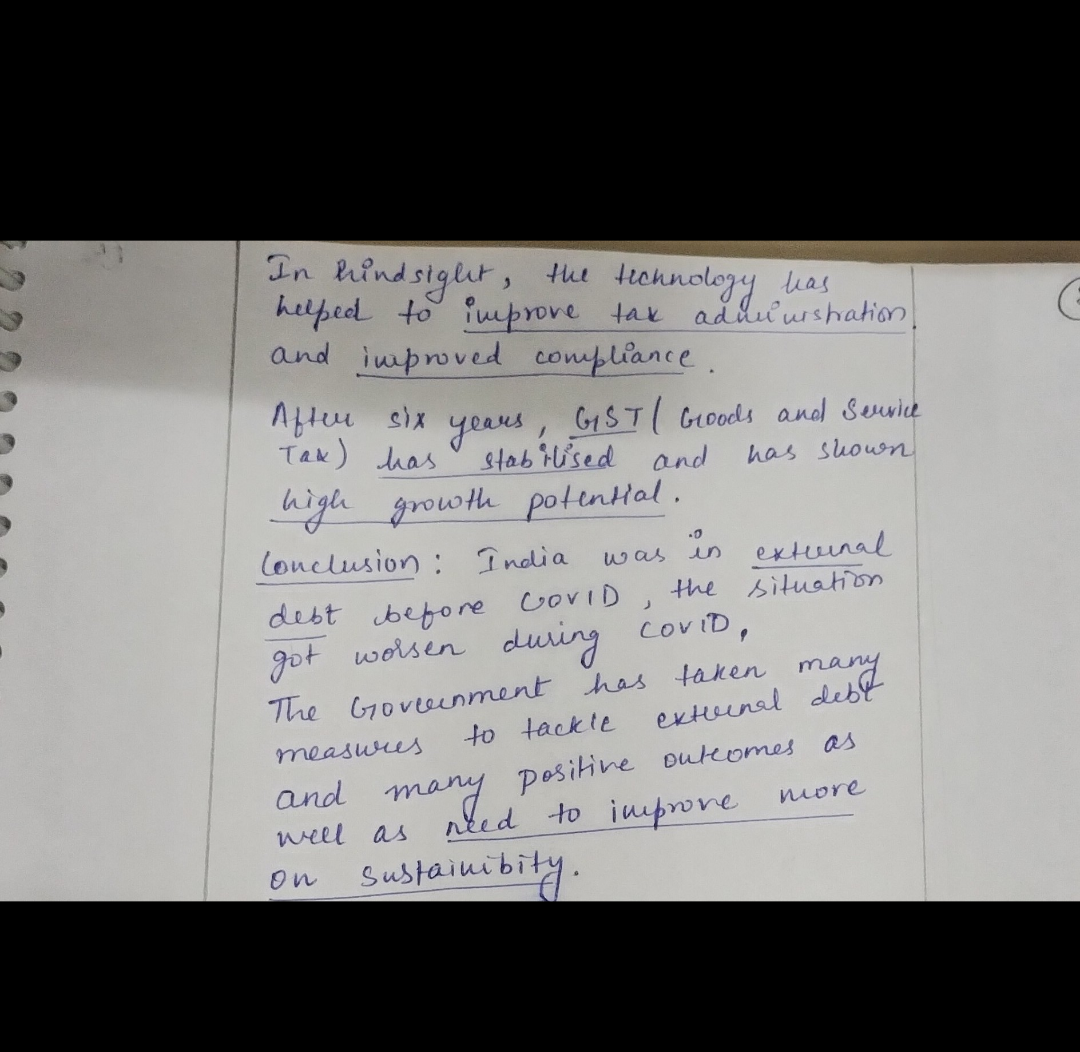 In hindsight, the technology has
helped to improve tax administration
and improved compliance.
After six years, GST ( Goods and Service
Tax) has stabilised and has shown
high growth potential.
Conclusion: India was in external
debt before COVID, the situation
got worsen during COVID,
The Government has taken many
measures to tackle external debt
and many positive outcomes as
well as need to improve more
on sustainibity.